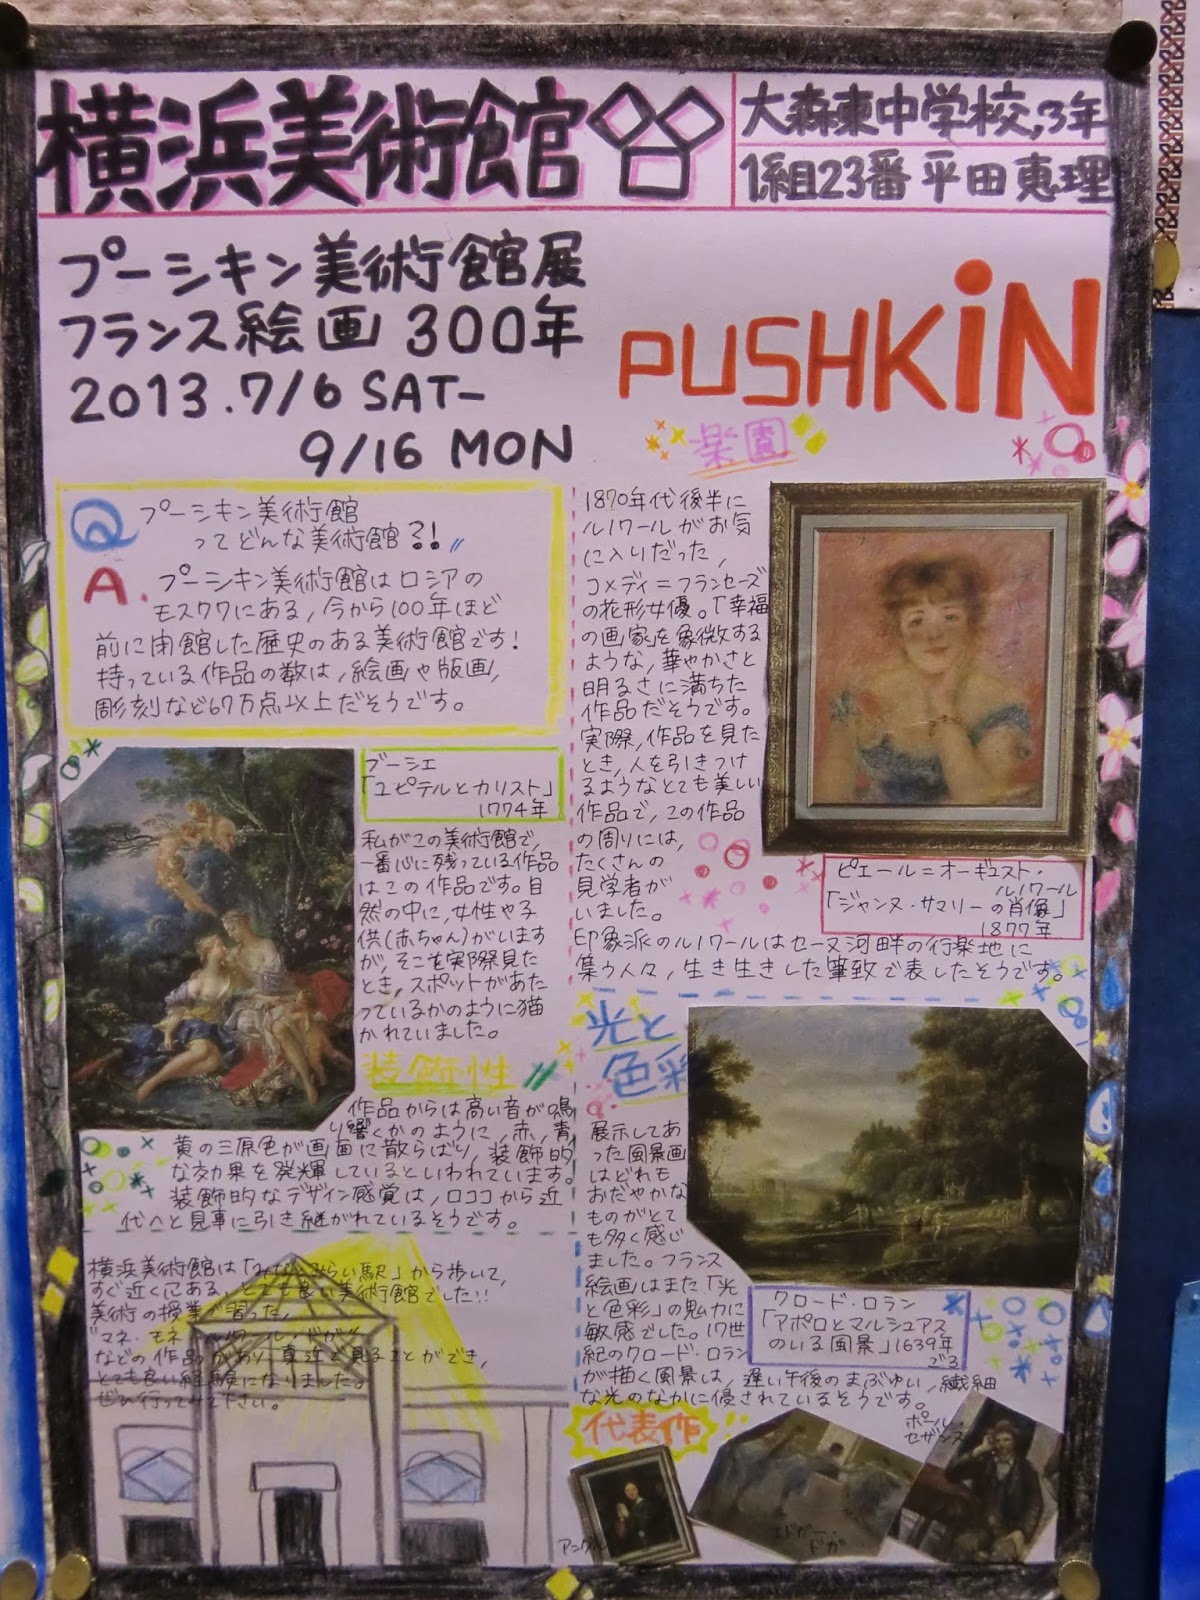 横浜美術館
大森東中学校,3年
1組23番 平田恵理
プーシキン美術館展
フランス絵画 300年
2013.7/6 SAT-
9/16 MON
PUSHKiN
Q プーシキン美術館
ってどんな美術館?!
A. プーシキン美術館はロシアの
モスクワにある,今から100年ほど
前に開館した歴史のある美術館です!
持っている作品の数は,絵画や版画,
彫刻など67万点以上だそうです。
ブーシェ
「ユピテルとカリスト」
1774年
私がこの美術館で,
一番心に残っている作品
はこの作品です。自
然の中に,女性や子
供(赤ちゃん)がいます
が,そこを実際見た
とき,スポットがあた
っているかのように描
かれていました。
装飾性
作品からは高い音が鳴
り響くかのように,赤,青,
黄の三原色が画面に散らばり,装飾的
な効果を発輝しているといわれています。
装飾的なデザイン感覚は,ロココから近
代へと見事に引き継がれているそうです。
横浜美術館は「みなとみらい駅」から歩いて,
すぐ近くにある,とても良い美術館でした!!
美術の授業で習った,
"マネ・モネ・ルノワール・ドガ"
などの作品があり,真近で見ることができ,
とても良い経験になりました。
ぜひ行ってみて下さい。
楽園
1870年代後半に
ルノワールがお気
に入りだった,
コメディ=フランセーズ
の花形女優。「幸福
の画家」を象徴する
ような,華やかさと
明るさに満ちた
作品だそうです。
実際,作品を見た
とき,人を引きつけ
るようなとても美しい
作品で,この作品
の周りには,
たくさんの
見学者が
いました。
印象派のルノワールはセーヌ河畔の行楽地に
集う人々,生き生きした筆致で表したそうです。
ピエール=オーギュスト・
ルノワール
「ジャンヌ・サマリーの肖像」
1877年
光と
色彩
展示してあ
った風景画
はどれも
おだやかな
ものがとて
も多く感じ
ました。フランス
絵画はまた「光
と色彩」の魅力に
敏感でした。17世
紀のクロード・ロラン
が描く風景は,遅い午後のまぶゆい,繊細
な光のなかに優されているそうです。
クロード・ロラン
「アポロとマルシュアス
のいる風景」1639年
ごろ
代表作!!
ポール・
セザンヌ
エドガー・
ドガ
アングル